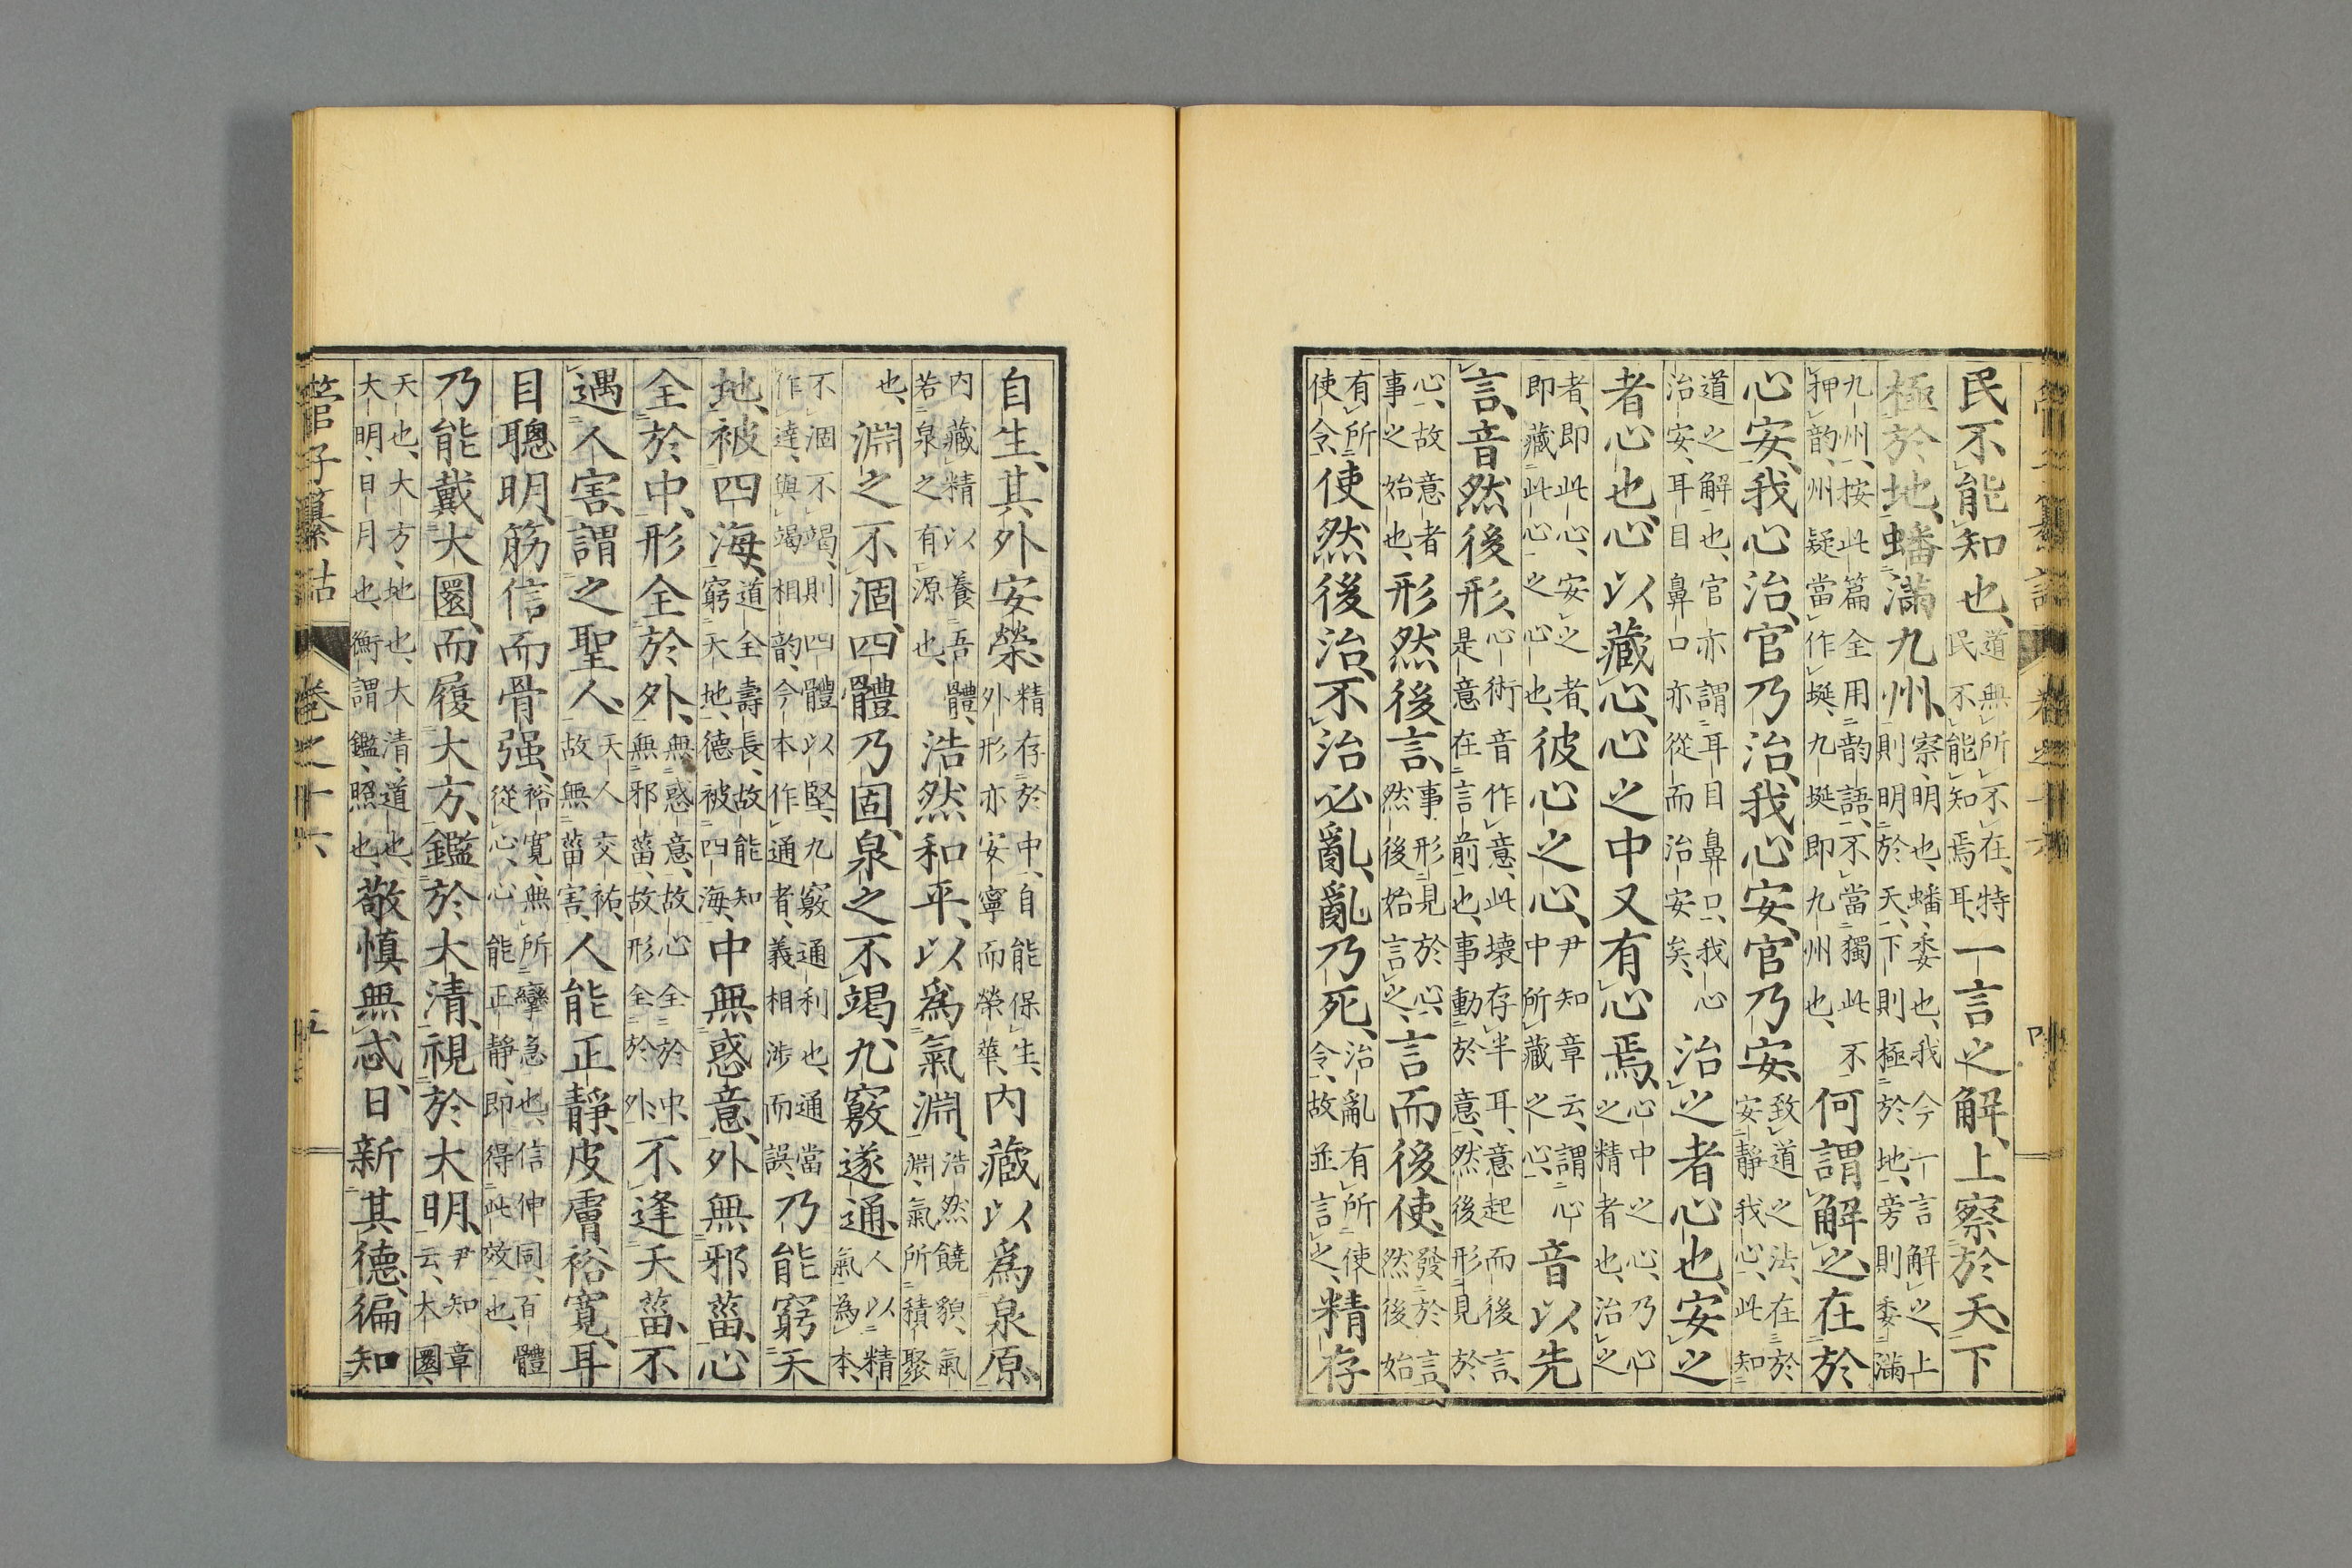 民不能知也、道無所不在、特民不能知焉耳、一言之解、上察於天、下
極於地、蟠滿九州、察、明也、蟠、委也、我今一言解之、上則明於天、下則極於地、旁則委滿
九州、按此篇全用韵語、不當獨此不押韵、州疑當作埏、九埏即九州也、何謂解之、在於
心安、我心治、官乃治、我心安、官乃安、致道之法、在於安靜我心、此知
道之解也、官亦謂耳目鼻口、我心治安、耳目鼻口亦從而治安矣、治之者心也、安之
者心也、心以藏心、心之中又有心焉、心中之心、乃心之精者也、治之
者、即此心、安之者、即藏此心之心也、彼心之心、尹知章云、謂心中所藏之心、音以先
言、音然後形、心術音作意、此壞存半耳、意起而後言、是意在言前也、事動於意、然後形見於
心、故意者事之始也、形然後言、事形見於心、然後始言之、言而後使、發於言、然後始
有所使令、使然後治、不治必亂、亂乃死、治亂有所使令、故並言之、精存
自生、其外安榮、精存於中、自能保生、外形亦安寧而榮華、内藏以爲泉原、
内藏精以養吾體、若泉之有源也、浩然和平、以爲氣淵、浩然饒貌、氣淵、氣所積聚
也、淵之不涸、四體乃固、泉之不竭、九竅遂通、人以精氣為本、
不涸不竭、則四體以堅、九竅通利也、通當作達、與竭相韵、今本作通者、義相涉而誤、乃能窮天
地、被四海、道全壽長、故能知窮天地、德被四海、中無惑意、外無邪菑、心
全於中、形全於外、無惑意、故心全於中、無邪菑、故形全於外、不逢天菑、不
遇人害、謂之聖人、天人交祐、故無菑害、人能正靜、皮膚裕寬、耳
目聰明、筋信而骨强、裕寬、無所攣急也、信伸同、百體從心、心能正靜、即得此效也、
乃能戴大圜、而履大方、鑑於大清、視於大明、尹知章云、大圜、
天也、大方、地也、大清、道也、大明、日月也、衡謂鑑、照也、敬慎無忒、日新其德、徧知
管子纂詁 卷之十六 五